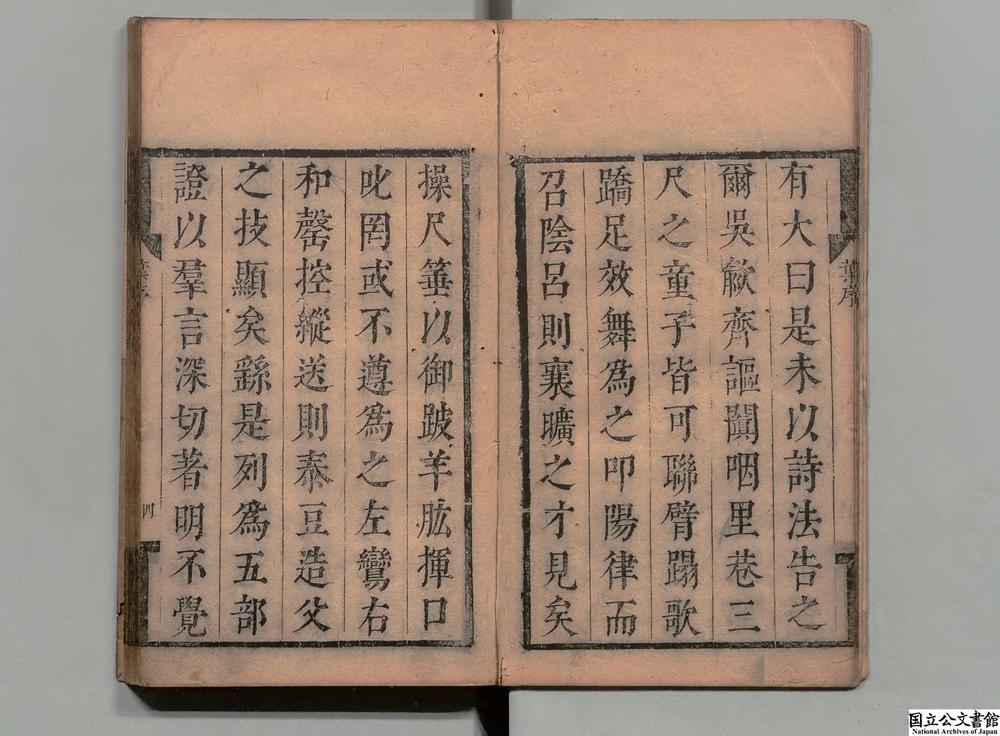 有大曰是未以詩法告之
爾吳歈齊謳闐咽里巷三
尺之童子皆可聯臂蹋歌
蹻足效舞爲之叩陽律而
召陰呂則襄曠之才見矣
操尺箠以御跛羊肱揮口
叱罔或不遵爲之左鸞右
和罄控縱送則泰豆造父
之技顯矣繇是列爲五部
證以羣言深切著明不覺
四
国立公文書館
National Archives of Japan